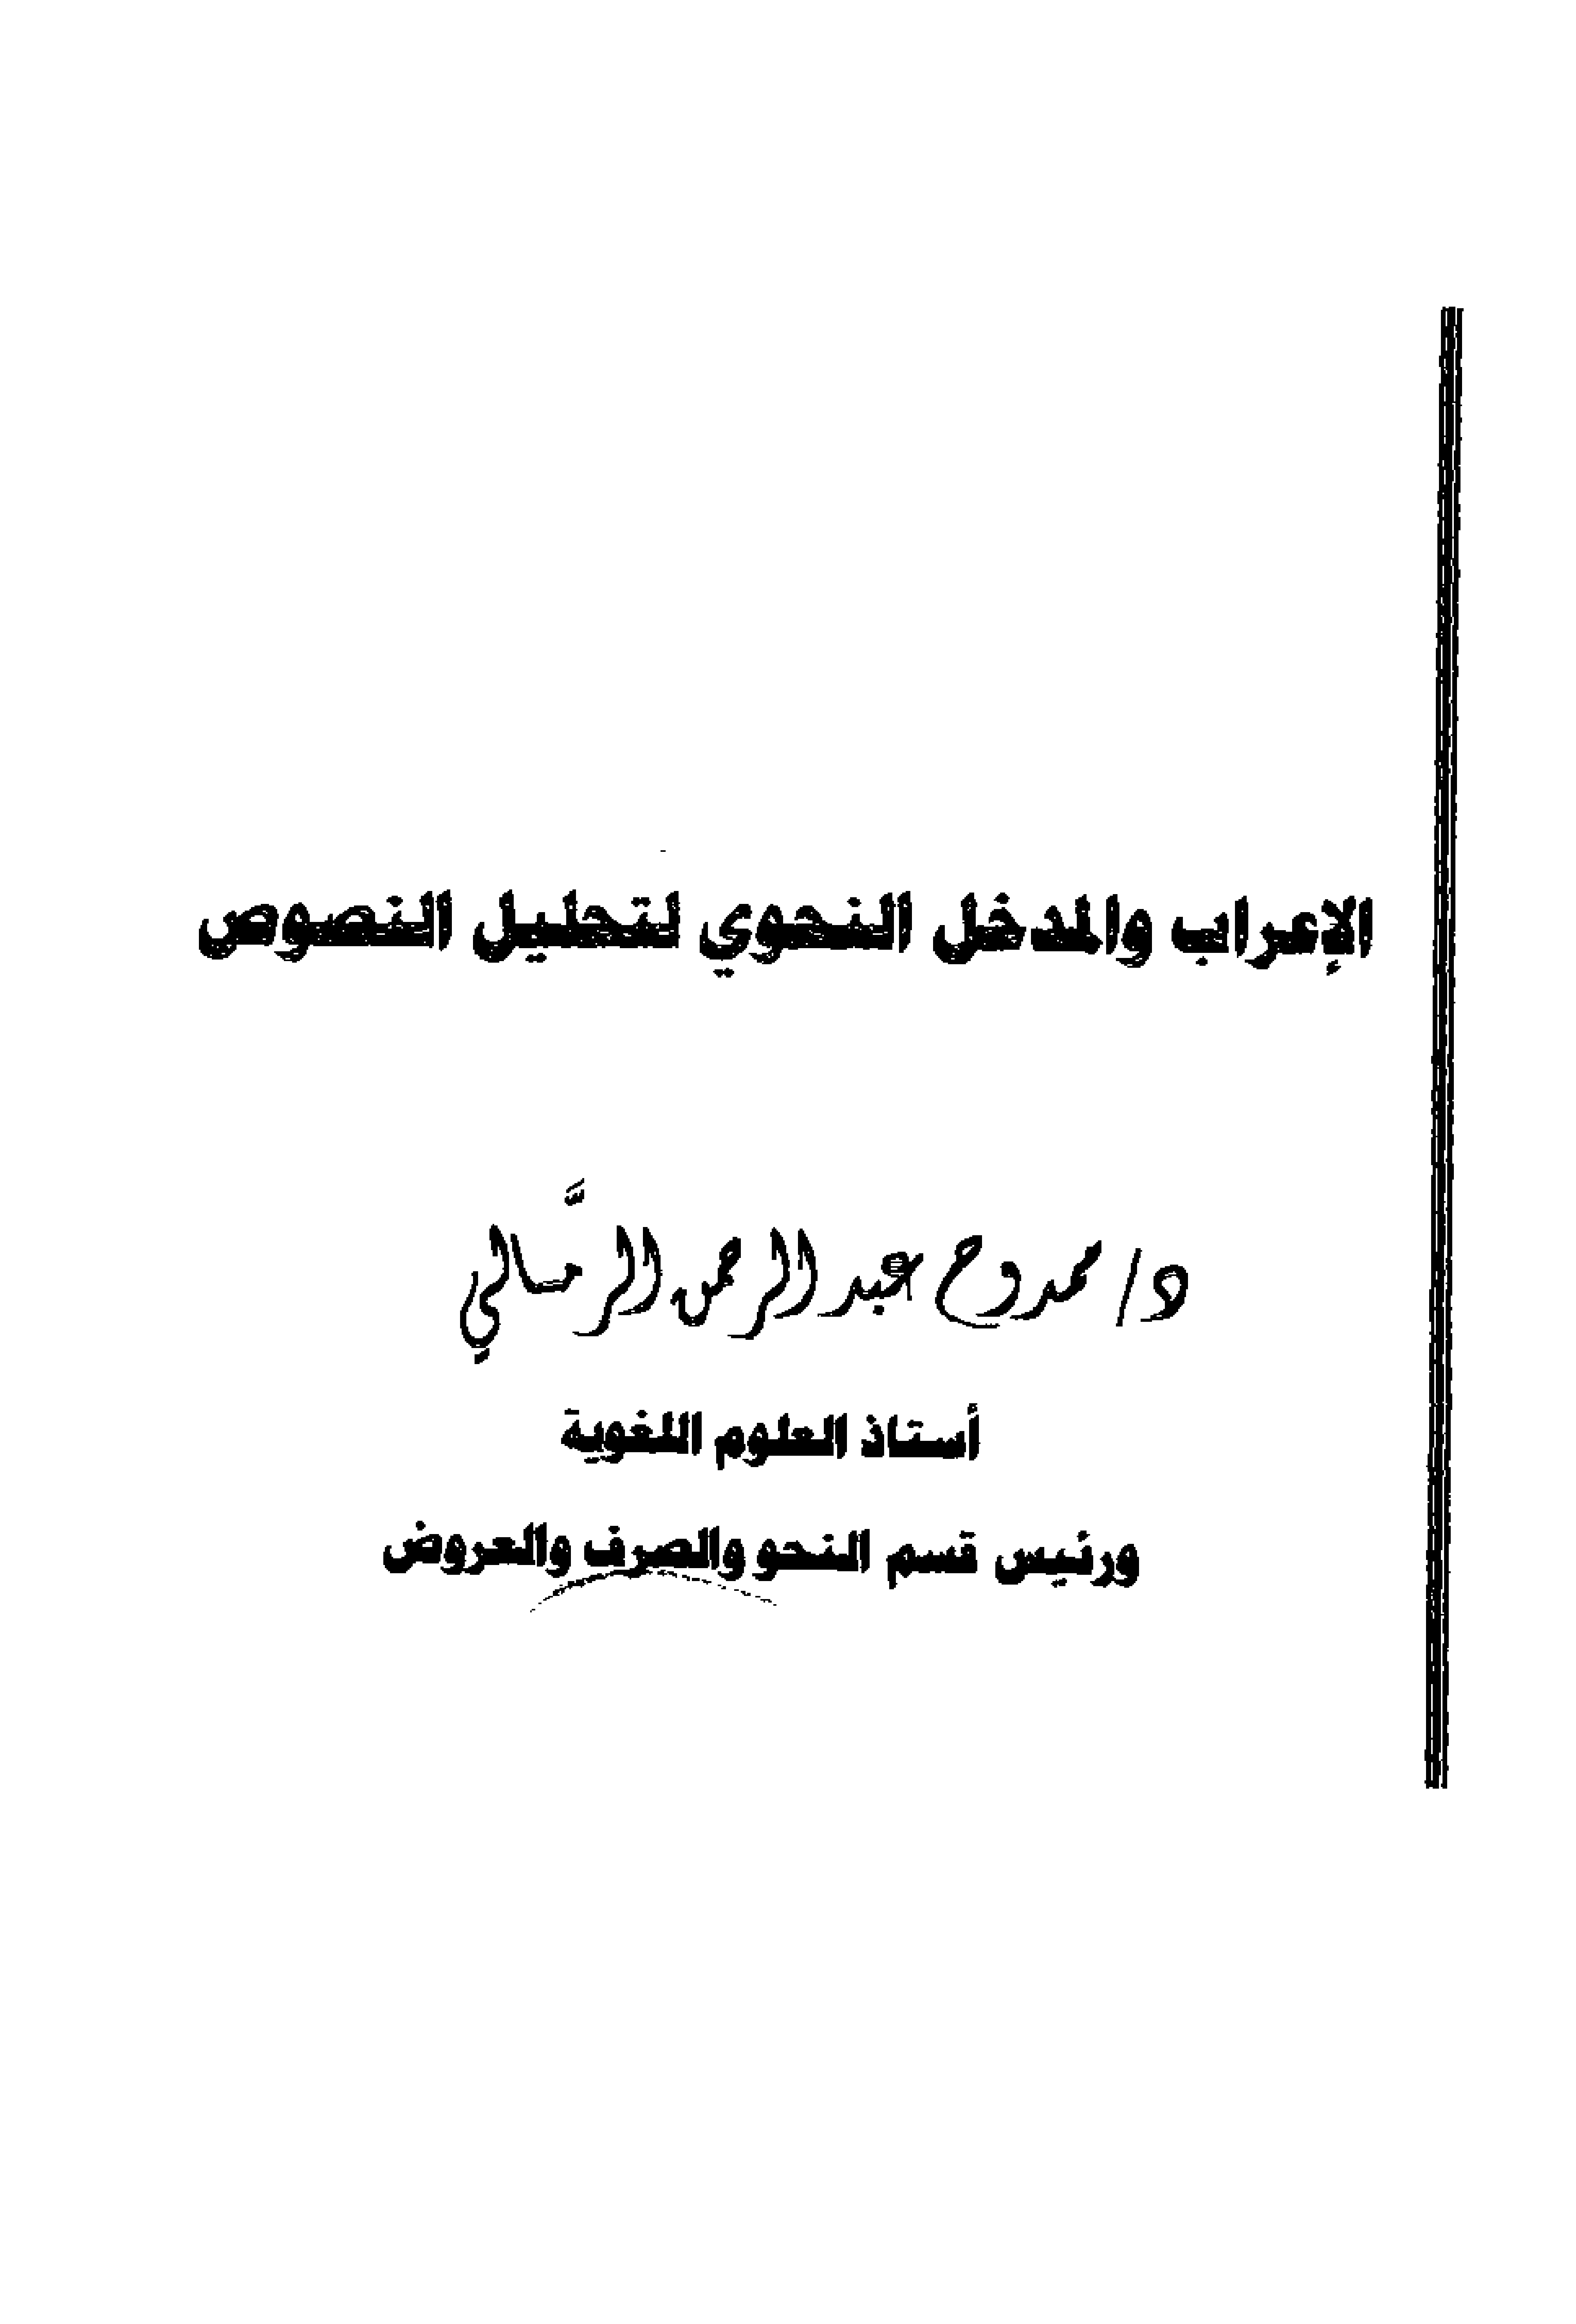 الإعراب والمدخل النحوي لتحليل النصوص
د/ ممدوح عبد الرحمن الرمَّالي
أستاذ العلوم اللغوية
ورئيس قسم النحو والصرف والعروض